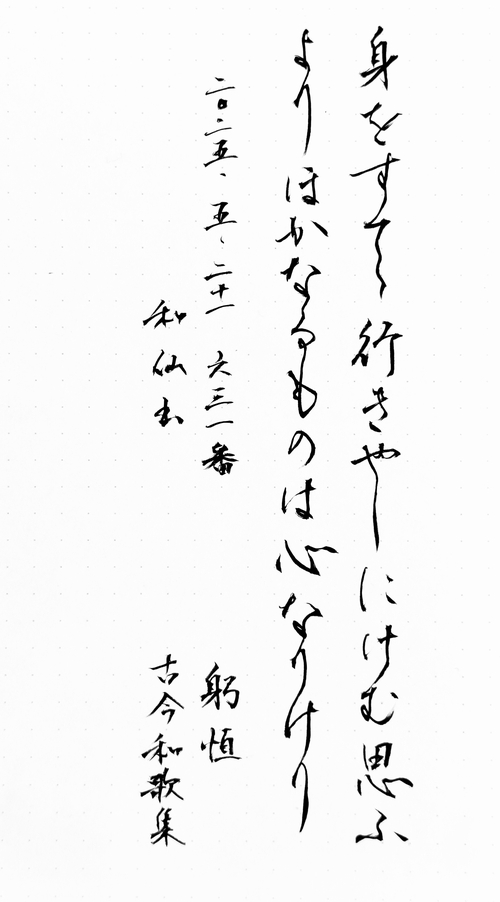 身をすてゝ行きやしにけむ思ふ
よりほかなるものは心なりけり
二〇二五、五、二十一 六三一番
躬恒
和仙書
古今和歌集